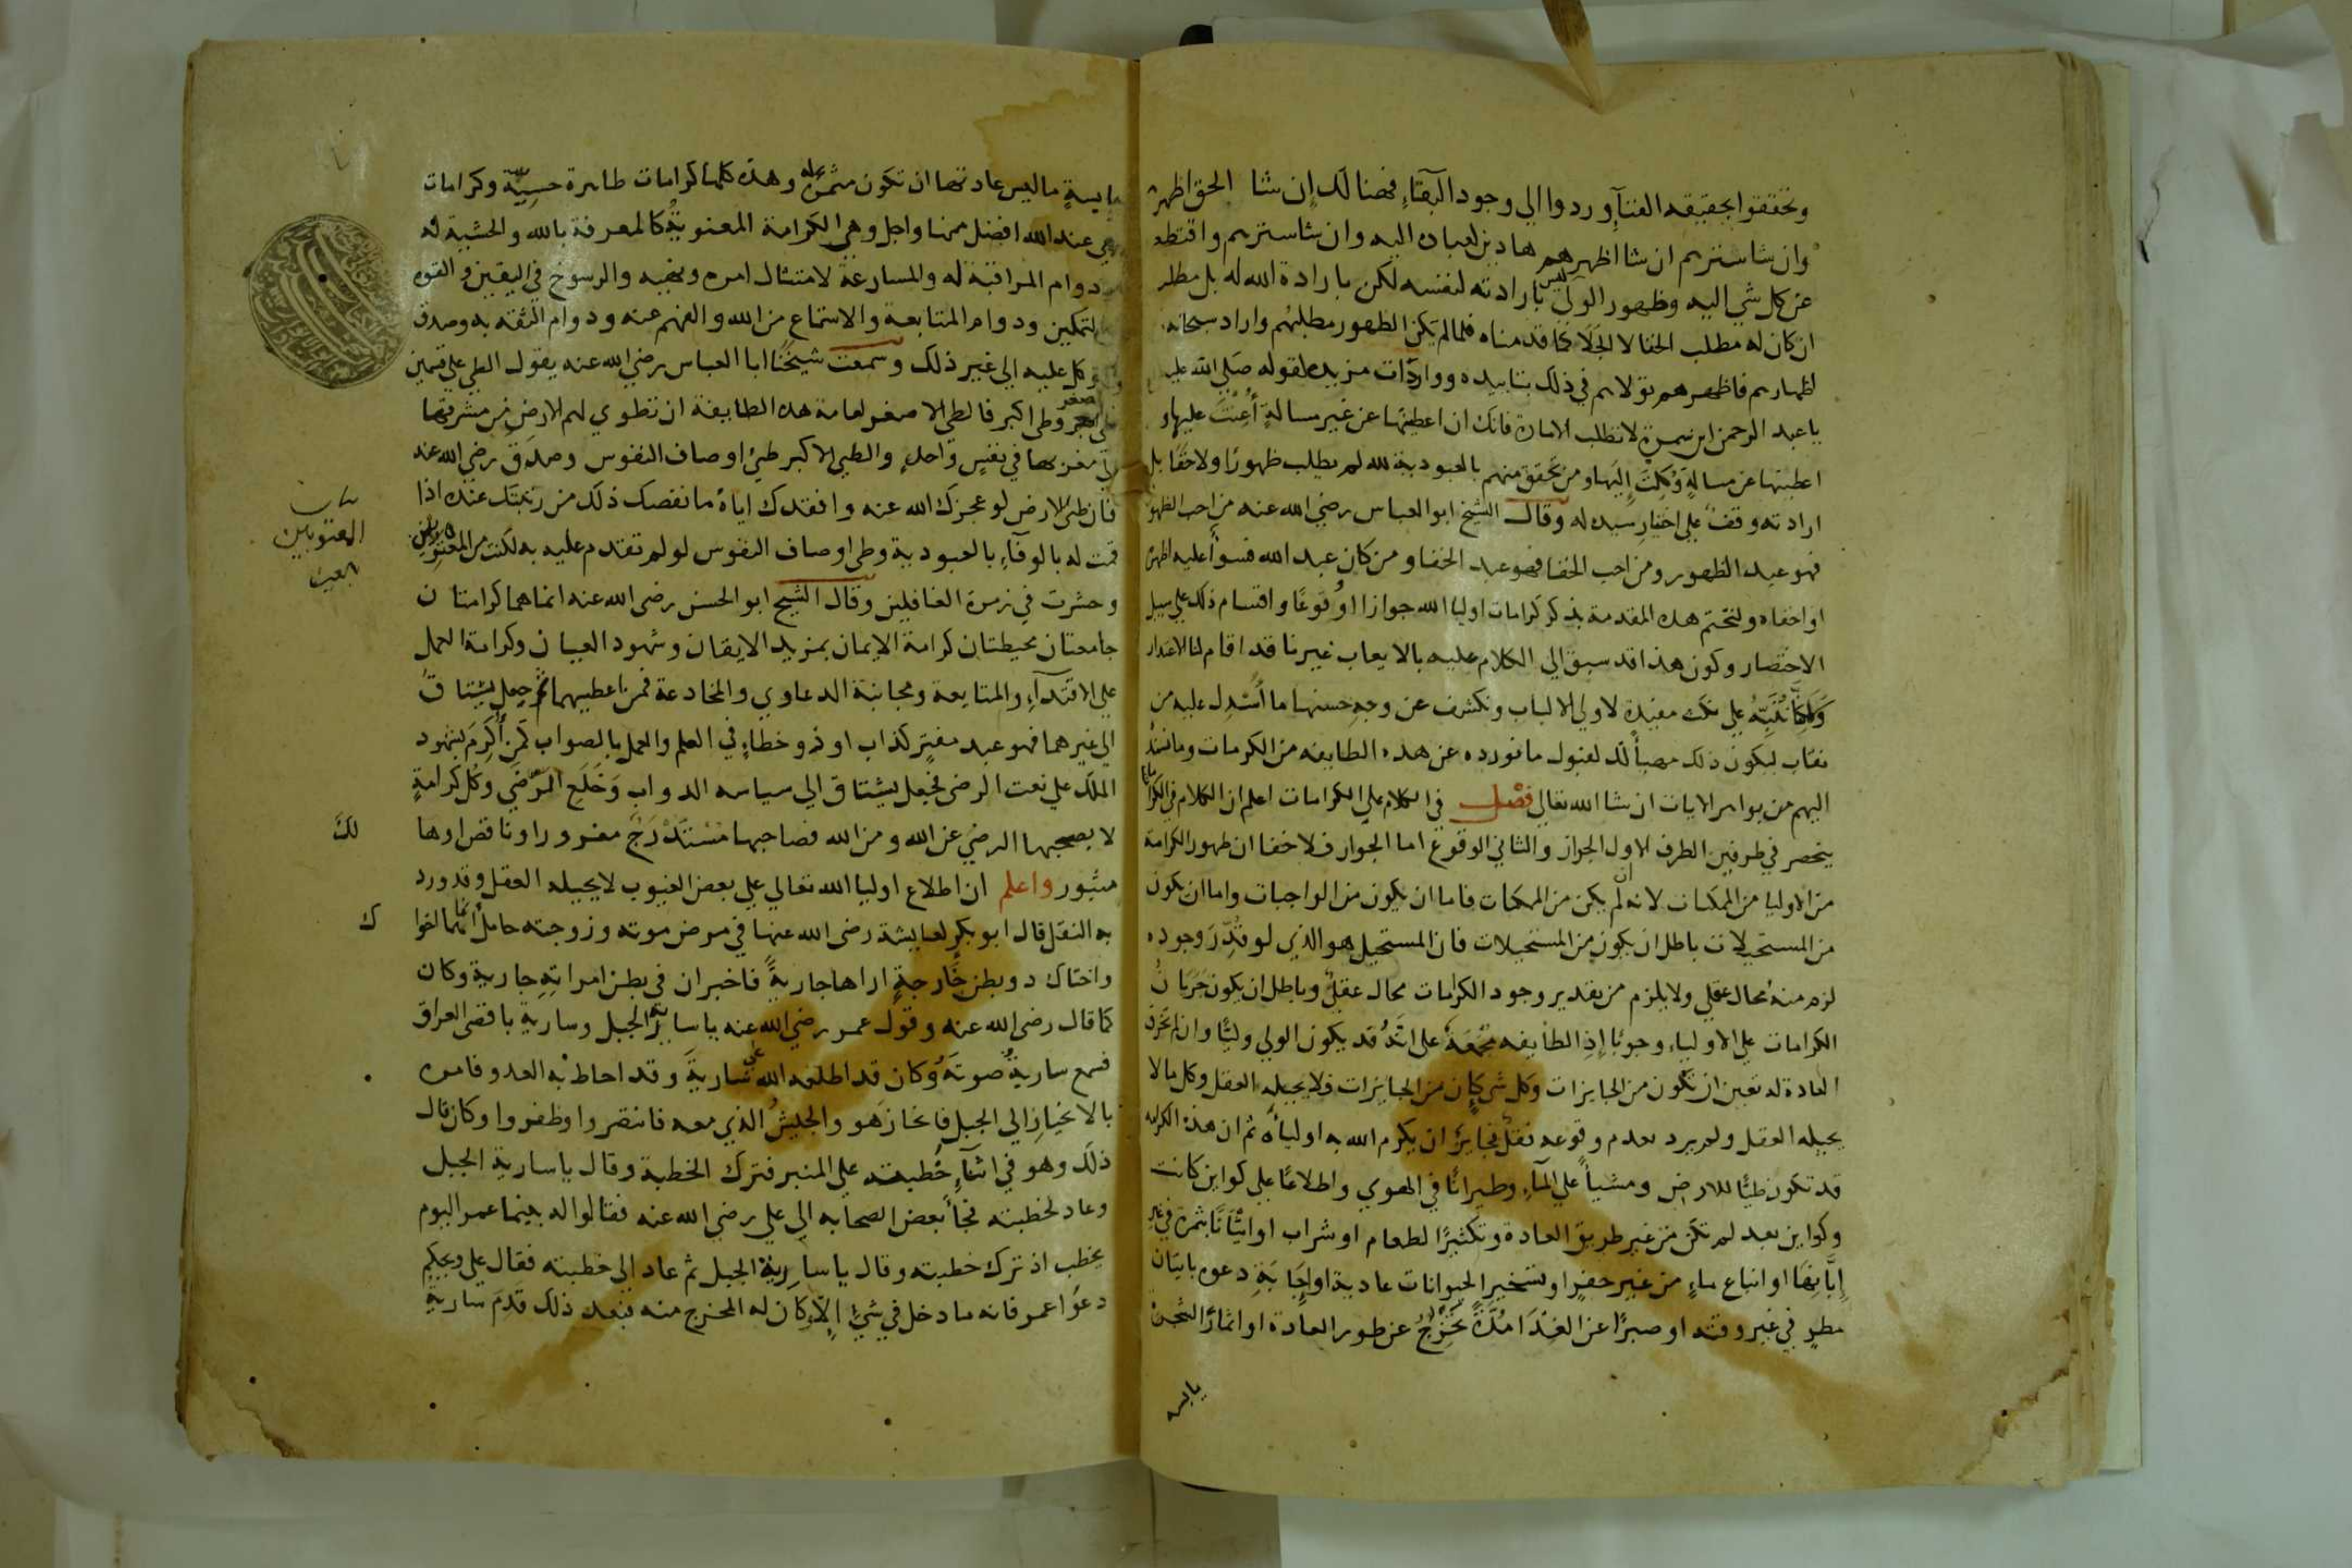 وتحققوا بحقيقه الفنآء وردوا الي وجود البقاء فهنالك إن شا الحق اظهرهم
وان شا سترهم ان شا اظهرهم هادين لعباده اليه وان شا سترهم واقتطعهم
عن كل شي اليه وظهور الولي ليس بارادته لنفسه لكن بارادة الله له بل مطلبه
ان كان له مطلب الخفا لا الجلا كما قدمناه فلما لم يكن الظهور مطلبهم واراد سبحانه
اظهارهم فاظهرهم تولاهم في ذلك بتاييده وواردات مزيده لقوله صلي الله عليه
يا عبد الرحمن ابن سمرة لا تطلب الامارة فانك ان اعطيتها عن غير مسالة أعنت عليها وان
اعطيتها عن مسالة وكلت إليها ومن تحقق منهم بالعبودية لله لم يطلب ظهورا ولا خفا بل
ارادته وقف علي اختيار سيده له وقال الشيخ ابو العباس رضي الله عنه من احب الظهور
فهو عبد الظهور ومن احب الخفا فهو عبد الخفا ومن كان عبد الله فسوأ عليه اظهره
او اخفاه ولنختم هذه المقدمة بذكر كرامات اوليا الله جوازا او وقوعا واقسام ذلك علي سبيل
الاختصار وكون هذا قد سبق الي الكلام عليه بالايعاب غيرنا قد اقام لنا الاعذار
ولكنا ننبه علي نكت مفيدة لاولي الالباب ونكشف عن وجه حسنها ما أسدل عليه من
نقاب ليكون ذلك مهيأ لك لقبول ما نورده عن هذه الطايفه من الكرمات وما نسنده
اليهم من بواهر الايات ان شا الله تعالي فصل في الكلام علي الكرامات اعلم ان الكلام في الكرامات
ينحصر في طرفين الطرف الاول الجواز والثاني الوقوع اما الجواز فلا خفا ان ظهور الكرامة
من الاوليا من الممكنات لانه ان لم يكن من الممكنات فاما ان يكون من الواجبات واما ان يكون
من المستحيلات باطل ان يكون من المستحيلات فان المستحيل هو الذي لو قدر وجوده
لزم منه محال عقلي ولا يلزم من تقدير وجود الكرامات محال عقلي وباطل ان يكون جريان
الكرامات علي الاولياء وجوبا إذ الطايفه مجمعة علي انه قد يكون الولي وليا وان لم تخرق
العادة له تعين ان تكون من الجايزات وكل شي كان من الجايزات فلا يحيله العقل وكل ما لا
يحيله العقل ولم يرد بعدم وقوعه نقل فجايز ان يكرم الله به اولياه ثم ان هذه الكرامه
قد تكون طيا للارض ومشيا علي المآء وطيرانا في الهوي واطلاعا علي كواين كانت
وكواين بعد لم تكن من غير طريق العادة وتكثيرا لطعام او شراب او اتيانا بثمرة في غير
إبانها او انباع ماء من غير حفر او تسخير الحيوانات عادية او إجابة دعوه باتيان
مطر في غير وقته او صبرا عن الغذا مدة تخرج عن طور العادة او اثمار الشجرة
يابسه
يابسةٍ ما ليس عادتها ان تكون مثمرة له وهذه كلها كرامات ظاهرة حسية وكرامات
هي عند الله افضل منها واجل وهي الكرامة المعنوية كالمعرفة بالله والخشية له
ودوام المراقبة له والمسارعة لامتثال امره ونهيه والرسوخ في اليقين والقوه
والتمكين ودوام المتابعة والاستماع من الله والفهم عنه ودوام الثقه به وصدق
التوكل عليه الي غير ذلك وسمعت شيخنا ابا العباس رضي الله عنه يقول الطي علي قسمين
طي اصغر وطي اكبر فالطي الاصغر لعامة هذه الطايفة ان تطوي لهم الارض من مشرقها
الي مغربها في نفس واحد والطي الاكبر طي اوصاف النفوس وصدق رضي الله عنه
فان طي الارض لو عجزك الله عنه وافقدك اياه ما نقصك ذلك من رتبتك عنده اذا
قمت له بالوفآء بالعبودية وطي اوصاف النفوس لو لم تقدم عليه به لكنت من المعتوبين
وحشرت في زمرة الغافلين وقال الشيخ ابو الحسن رضي الله عنه انما هما كرامتان
جامعتان محيطتان كرامة الايمان بمزيد الايقان وشهود العيان وكرامة العمل
علي الاقتدآء والمتابعة ومجانبة الدعاوي والمخادعة فمن اعطيهما ثم جعل يشتاق
الي غيرهما فهو عبد مفتر كذاب او ذو خطاء في العلم والعمل بالصواب كمن أكرم بشهود
الملك علي نعت الرضي فجعل يشتاق الي سياسه الدواب وخلع المرضي وكل كرامة
لا يصحبها الرضي عن الله ومن الله فصاحبها مستدرج مغرور او ناقص او ها
مثبور واعلم ان اطلاع اوليا الله تعالي علي بعض الغيوب لا يحيله العقل وقد ورد
به النقل قال ابو بكر لعايشة رضي الله عنها في مرض موته وزوجته حامل انما هما اخوا
واختاك ذو بطن خارجة اراها جارية فاخبر ان في بطن امراته جارية وكان
كما قال رضي الله عنه وقول عمر رضي الله عنه يا سارية الجبل وسارية باقصي العراق
فسمع سارية صوته وكان قد اطلعه الله علي سارية وقد احاط به العدو فامره
بالانحياز الي الجبل فانحاز هو والجيش الذي معه فانتصروا وظفروا وكان قال
ذلك وهو في اثنآء خطبته علي المنبر فترك الخطبة وقال يا سارية الجبل
وعاد لخطبته فجأ بعض الصحابه الي علي رضي الله عنه فقالوا له بينما عمر اليوم
يخطب اذ ترك خطبته وقال يا سارية الجبل ثم عاد الي خطبته فقال علي ويحكم
دعوا عمر فانه ما دخل في شي إلا وكان له المخرج منه فبعد ذلك قدم سارية
المعتوبين